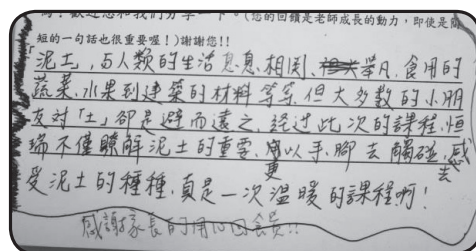 嗎?歡迎您和我們分享一下。(您的回饋是老師成長的動力,即使是簡
短的一句話也很重要喔!)謝謝您!!
泥土,与人類的生活息息相関、舉凡,食用的
蔬菜、水果到建築的材料等等,但大多數的小朋
友対「土」卻是避而遠之,経过此次的課程,恒
瑞不僅瞭解泥土的重要,更以手、腳去觸碰,去感
受泥土的種種,真是一次溫暖的課程啊!
感謝家長的用心回饋!!